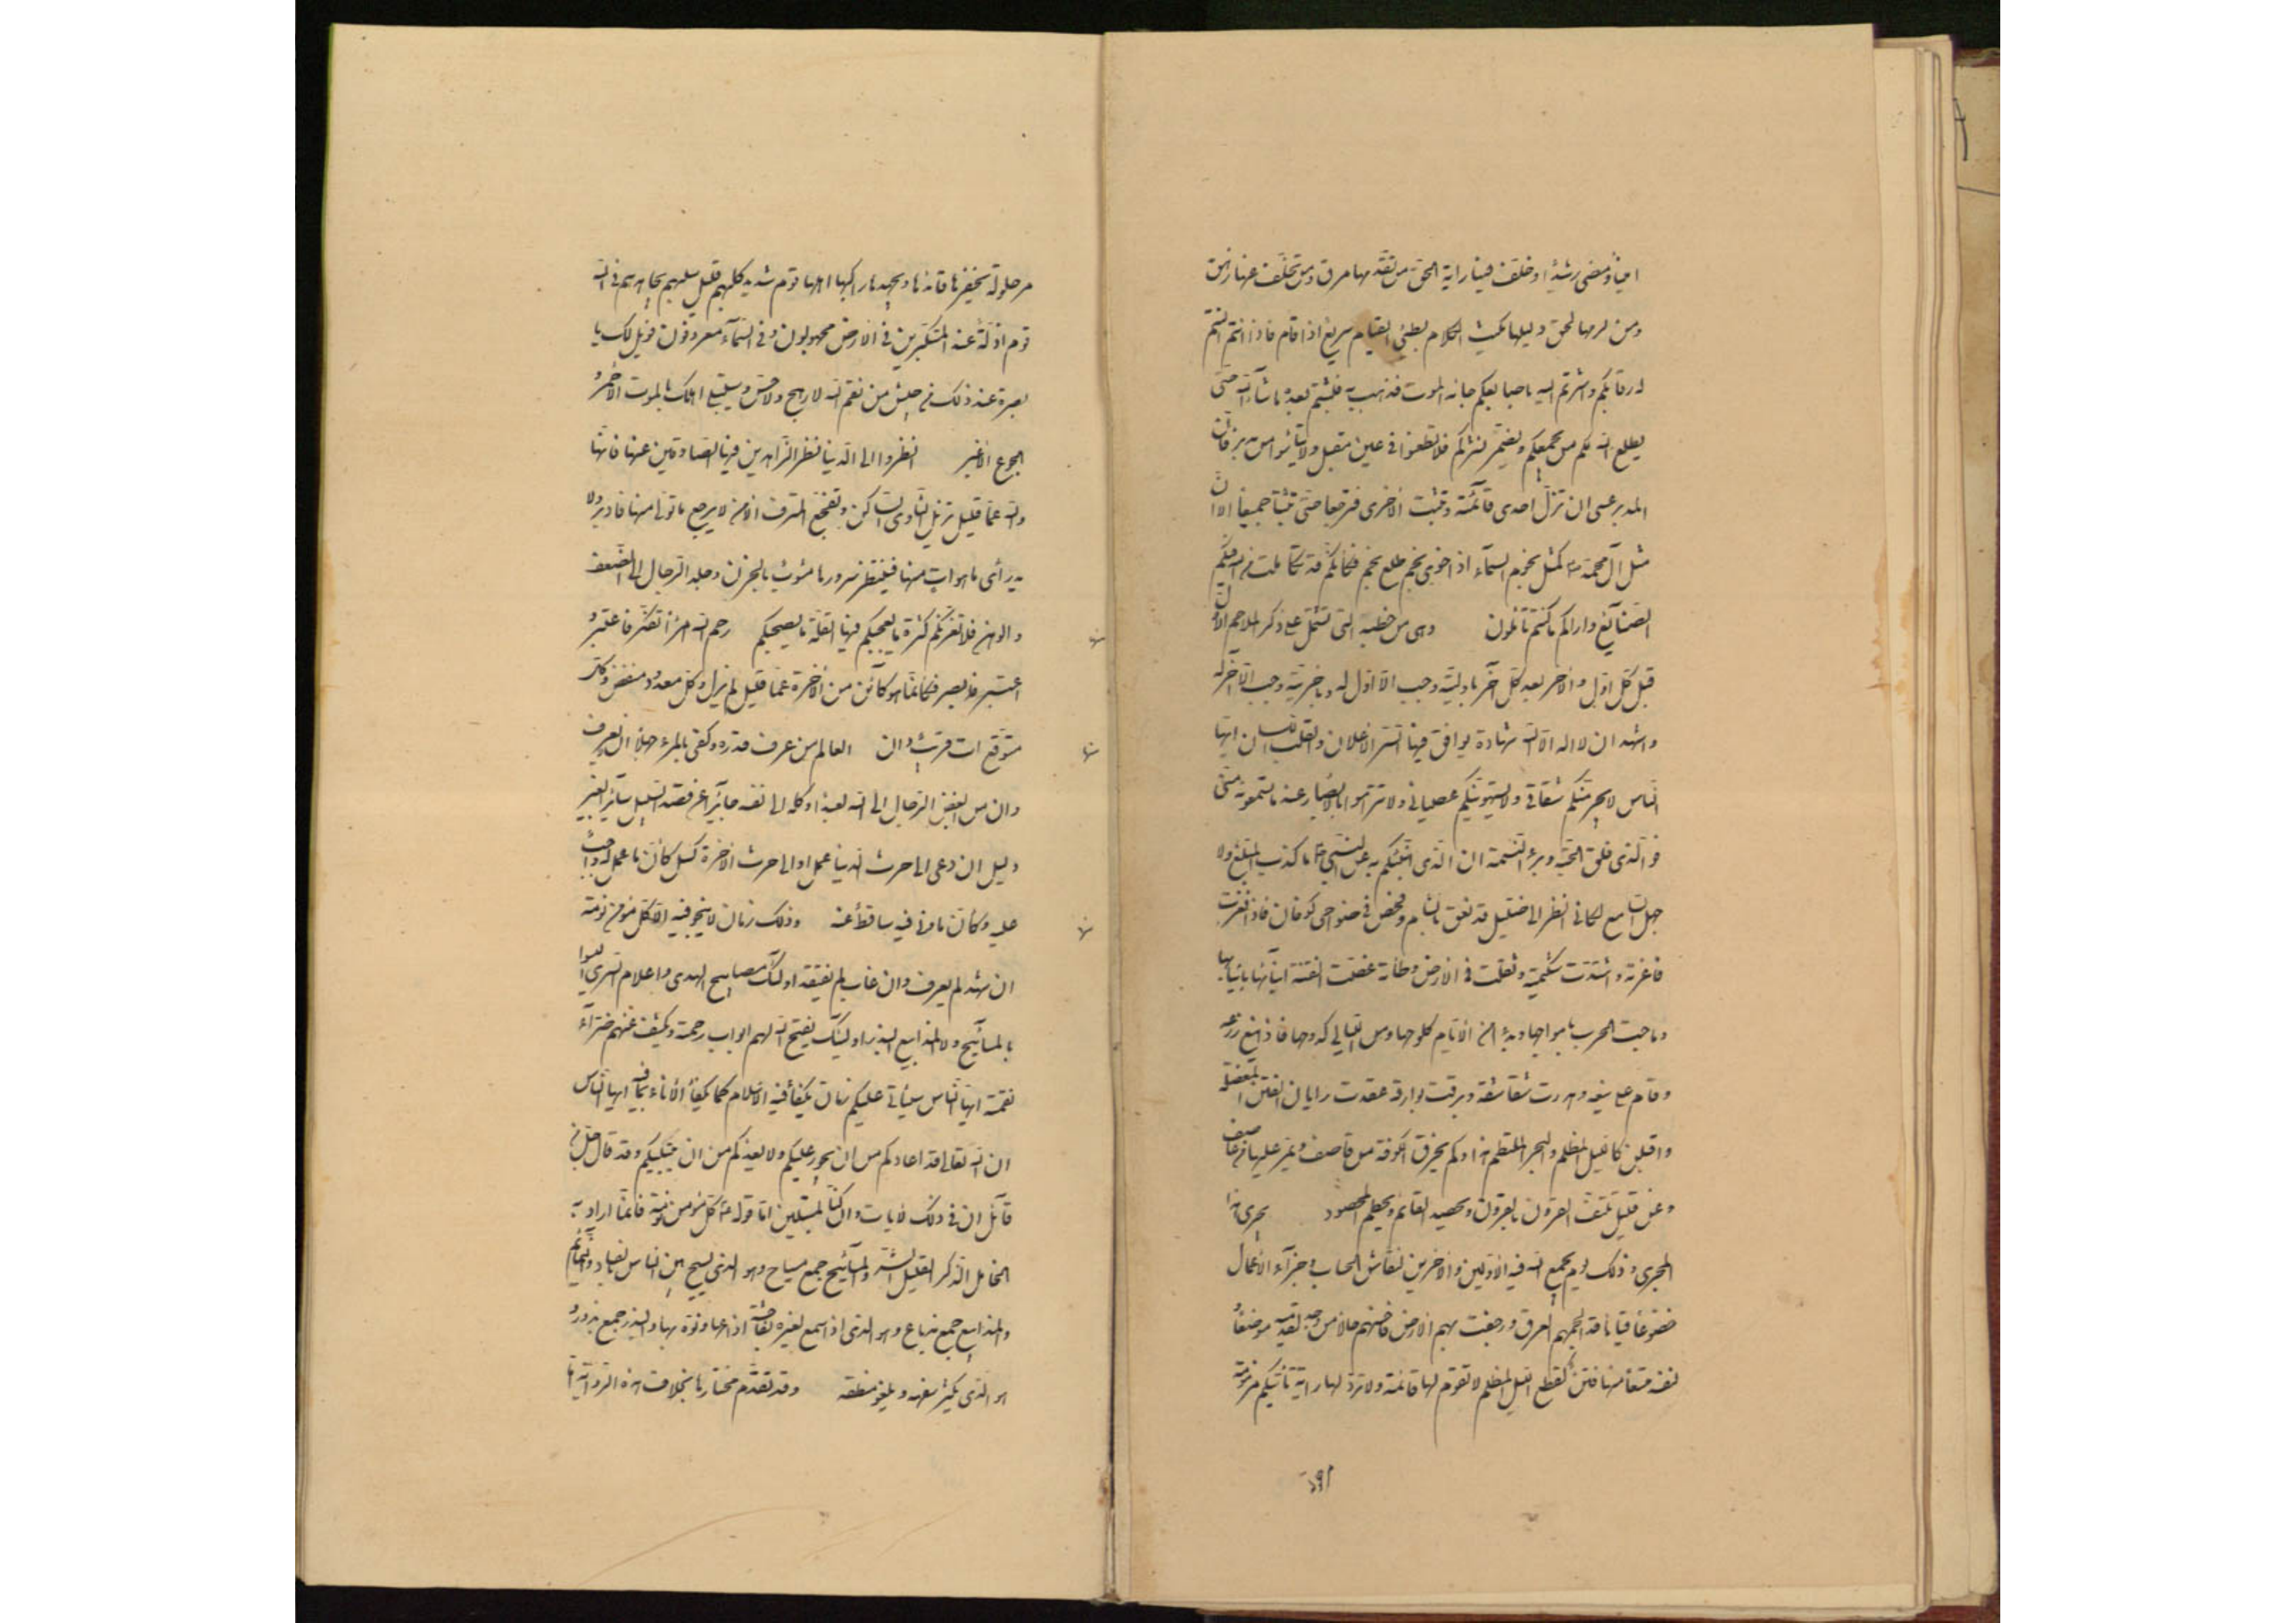 امينا ومضى رشيدا وخلف فينا راية الحق من تقدمها مرق ومن تخلف عنها زهق
ومن لزمها لحق دليلها مكيث الكلام بطئ القيام سريع اذا قام فاذا انتم النتم
له رقابكم واشرتم اليه باصابعكم جاءه الموت فذهب به فلبثتم بعده ما شاء الله حتى
يطلع الله لكم من يجمعكم ويضم نشركم فلا تطعنوا في عين مقبل ولا تيأسوا من مدبر فان
المدبر عسى ان تزل احدى قائمتيه وتثبت الاخرى فترجعا حتى تثبتا جميعا الا ان
مثل آل محمد كمثل نجوم السماء اذا خوى نجم طلع نجم فكانكم قد تكاملت من الله فيكم
الصنائع واراكم ما كنتم تأملون وهى من خطبه التى تشتمل على ذكر الملاحم الاول
قبل كل اول والاخر بعد كل آخر باوليته وجب الا اول له وباخريته وجب الا آخر له
واشهد ان لا اله الا الله شهادة يوافق فيها السر الاعلان والقلب اللسان ايها
الناس لا يجرمنكم شقاقى ولا يستهوينكم عصيانى ولا تتراموا بالابصار عند ما تسمعونه منى
فوالذى فلق الحبة وبرء النسمة ان الذى انبئكم به عن النبى ما كذب المبلغ ولا
جهل السامع لكانى انظر الى ضليل قد نعق بالشام وفحص في ضواحى كوفان فاذا فغرت
فاغرته واشتدت شكيمته وثقلت في الارض وطأته عضت الفتنة ابناءها بانيابها
وماجت الحرب بامواجها وبدء من الايام كلوحها ومن الليالي كدوحها فاذا ينع زرعه
وقام على ينعه وهدرت شقاشقه وبرقت بوارقه عقدت رايات الفتن المعضلة
واقبلن كالليل المظلم والبحر الملتطم هذا وكم يخرق الكوفة من قاصف ويمر عليها من عاصف
وعن قليل تلتف القرون بالقرون ويحصد القائم ويحطم المحصود يجرى هذا
المجرى وذلك يوم يجمع الله فيه الاولين والاخرين لنقاش الحساب وجزاء الاعمال
خضوعا قياما قد الجمهم العرق ورجفت بهم الارض فاحسنهم حالا من وجد لقدميه موضعا
لنفسه متسعا منها فتن كقطع الليل المظلم لا تقوم لها قائمة ولا ترد لها راية تأتيكم مزمومة
مرحولة يحفزها قائدها ويجهدها راكبها اهلها قوم شديد كلبهم قليل سلبهم يجاهدهم في الله
قوم اذلة عند المتكبرين في الارض مجهولون وفى السماء معروفون فويل لك يا
بصرة عند ذلك من جيش من نقم الله لا رهج له ولا حس وسيبتلى اهلك بالموت الاحمر و
الجوع الاغبر انظروا الى الدنيا نظر الزاهدين فيها الصادقين عنها فانها
والله عما قليل تزيل الثاوى الساكن وتفجع المترف الامن لا يرجع ما تولى منها فادبر ولا
يدرى ما هو ات منها فينتظر سرورها مشوب بالحزن وجلد الرجال الى الضعف
والوهن فلا تغرنكم كثرة ما يعجبكم فيها لقلة ما يصحبكم رحم الله امرأ تفكر فاعتبر و
اعتبر فابصر فكانما هو كائن من الاخرة عما قليل لم يزل وكل معدود منقض وكل
متوقع ات قريب دان العالم من عرف قدره وكفى بالمرء جهلا ان لا يعرف
وان من ابغض الرجال الى الله لعبد اوكله الى نفسه جائرا عن قصد السبيل سائرا بغير
دليل ان دعى الى حرث الدنيا عمل او الى حرث الاخرة كسل كأن ما عمل له واجب
عليه وكأن ما ونى فيه ساقط عنه وذلك زمان لا ينجو فيه الا كل مؤمن نومة
ان شهد لم يعرف وان غاب لم يفتقد اولئك مصابيح الهدى واعلام السرى ليسوا
بالمسائيح ولا المذاييع البذر اولئك يفتح الله لهم ابواب رحمته ويكشف عنهم ضراء
نقمته ايها الناس سيأتى عليكم زمان يكفأ فيه الاسلام كما يكفأ الاناء بما فيه ايها الناس
ان الله تعالى قد اعاذكم من ان يجور عليكم ولم يعذكم من ان يبتليكم وقد قال جل من
قائل ان في ذلك لايات وان كنا لمبتلين اما قوله كل مؤمن نومة فانما اراد به
الخامل الذكر القليل الشر والمسائيح جمع مسياح وهو الذى يسيح بين الناس بالفساد والنمائم
والمذاييع جمع مذياع وهو الذى اذا سمع لغيره بفاحشة اذاعها ونوه بها والبذر جمع بذور و
هو الذى يكثر سفهه ويلغو منطقه وقد تقدم مختارها بخلاف هذه الرواية